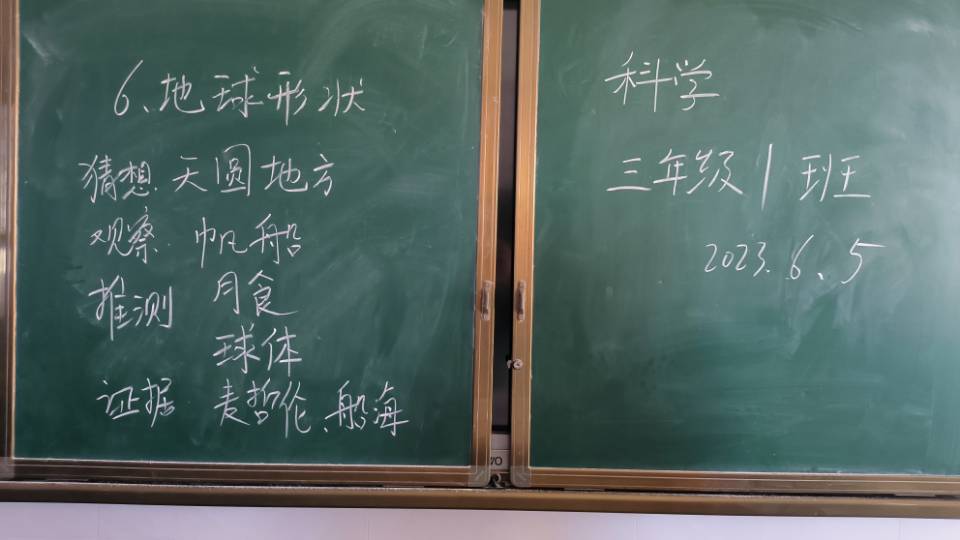 6、地球形状
猜想 天圆地方
观察 帆船
推测 月食
球体
证据 麦哲伦、船海
科学
三年级1班
2023.6、5
70